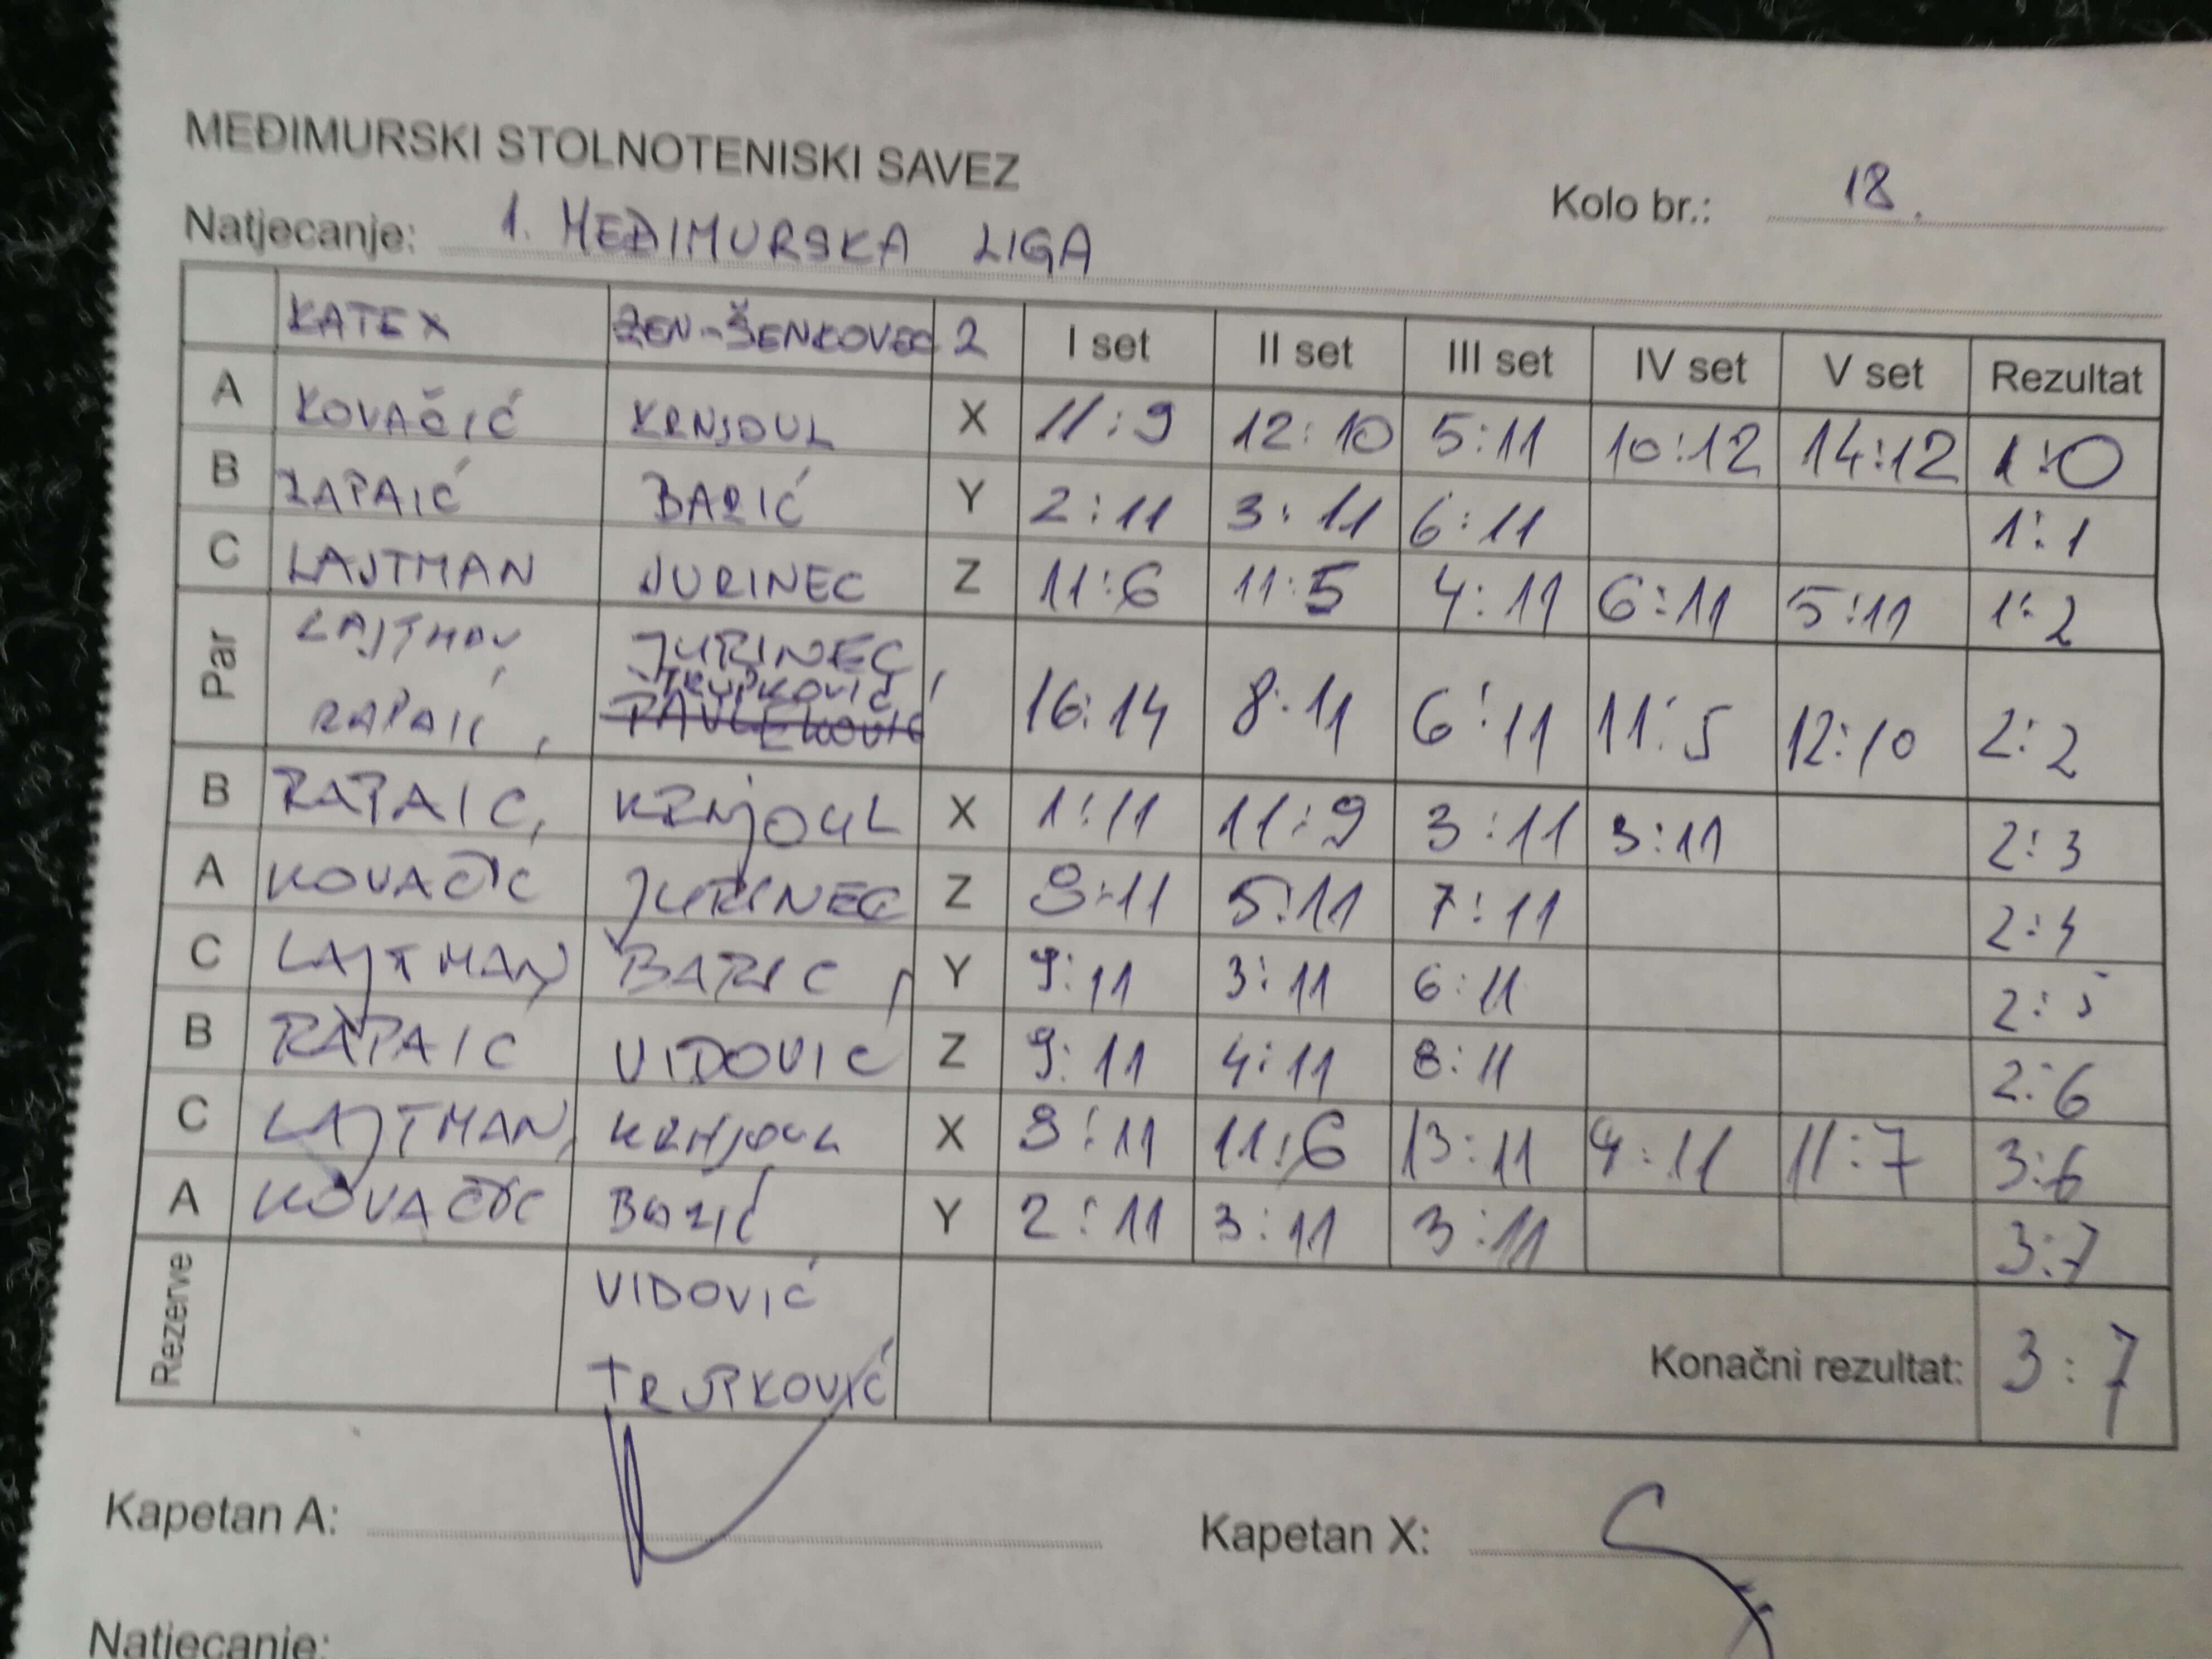 MEĐIMURSKI STOLNOTENISKI SAVEZ
Kolo br.: 18.
Natjecanje: 1. MEĐIMURSKA LIGA
KATEX ŽEN-ŠENKOVEC 2 I set II set III set IV set V set Rezultat
A KOVAČIĆ KRNJOUL X 11:9 12:10 5:11 10:12 14:12 1:0
B RAPAIĆ BARIĆ Y 2:11 3:11 6:11 1:1
C LAJTMAN JURINEC Z 11:6 11:5 4:11 6:11 5:11 1:2
Par LAJTMAN, JURINEC, TRUPKOVIĆ
RAPAIĆ, PAVLEKOVIĆ 16:14 8:11 6:11 11:5 12:10 2:2
B RAPAIC, KRNJOUL X 1:11 11:9 3:11 3:11 2:3
A KOVAČIĆ JURINEC Z 8:11 5:11 7:11 2:4
C LAJTMAN, BARIC Y 9:11 3:11 6:11 2:5
B RAPAIC VIDOVIC Z 9:11 4:11 8:11 2:6
C LAJTMAN, KRNJOUL X 8:11 11:6 13:11 4:11 11:7 3:6
A KOVAČIĆ BARIĆ Y 2:11 3:11 3:11 3:7
Rezerve VIDOVIĆ
TRUPKOVIĆ
Konačni rezultat: 3:7
Kapetan A: Kapetan X:
Natjecanje: